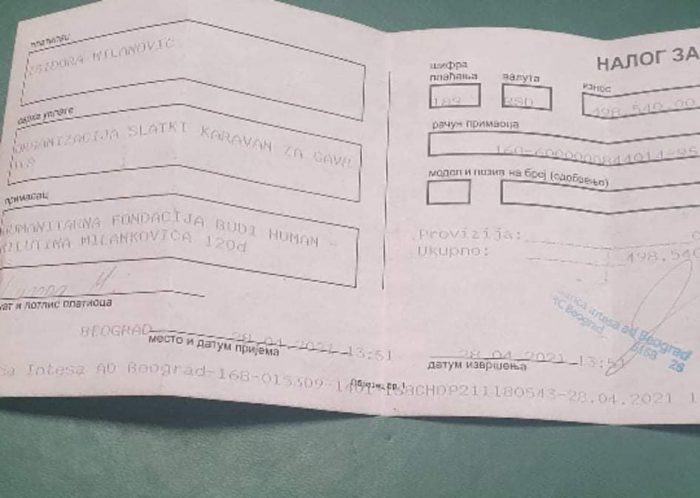 платилац
ISIDORA MILANOVIĆ
сврха уплате
ORGANIZACIJA SLATKI KARAVAN ZA GAVR
прималац
HUMANITARNA FONDACIJA BUDI HUMAN -
MILUTINA MILANKOVIĆA 120d
и потпис платиоца
BEOGRAD 28.04.2021 13:51
место и датум пријема
НАЛОГ ЗА
шифра плаћања
валута
износ
189
RSD
498.540,00
рачун примаоца
модел и позив на број (одобрење)
Provizija:
Ukupno: 498.540
Banca Intesa ad Beograd
Beograd
28.04.2021 13:51
датум извршења
Intesa AD Beograd-168-015309-1401-168CHDP211180543-28.04.2021 1
Образац бр. 1